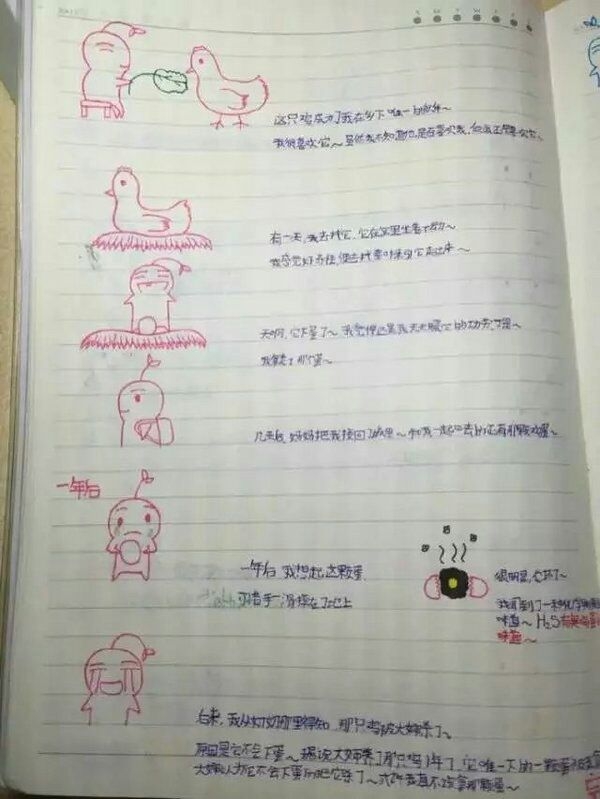 这只鸡成为了我在乡下唯一的伙伴~
我很喜欢它~虽然我不知道它是否喜欢我，但我还是喜欢它。
有一天，我去找它，它在窝里坐着不动~
我感觉好奇怪，便去找
它走出来~
天啊，它下蛋了~我觉得这是我天天喂它的功劳
我拿走了那个蛋~
几天后，妈妈把我接回了城里~和我一起回去的还有那颗鸡蛋~
一年后
一年后 我想起这颗蛋
手一滑掉在了地上
很明显，它坏了~
我闻到了一种化学
味道~H₂S
味道~
后来，我从奶奶那里得知，那只鸡被大婶杀了~
原因是它不会下蛋~据说大婶养了那只鸡1年了，它唯一下的一颗蛋
大婶认为它不会下蛋所以把它杀了~
我真不该拿那颗蛋~